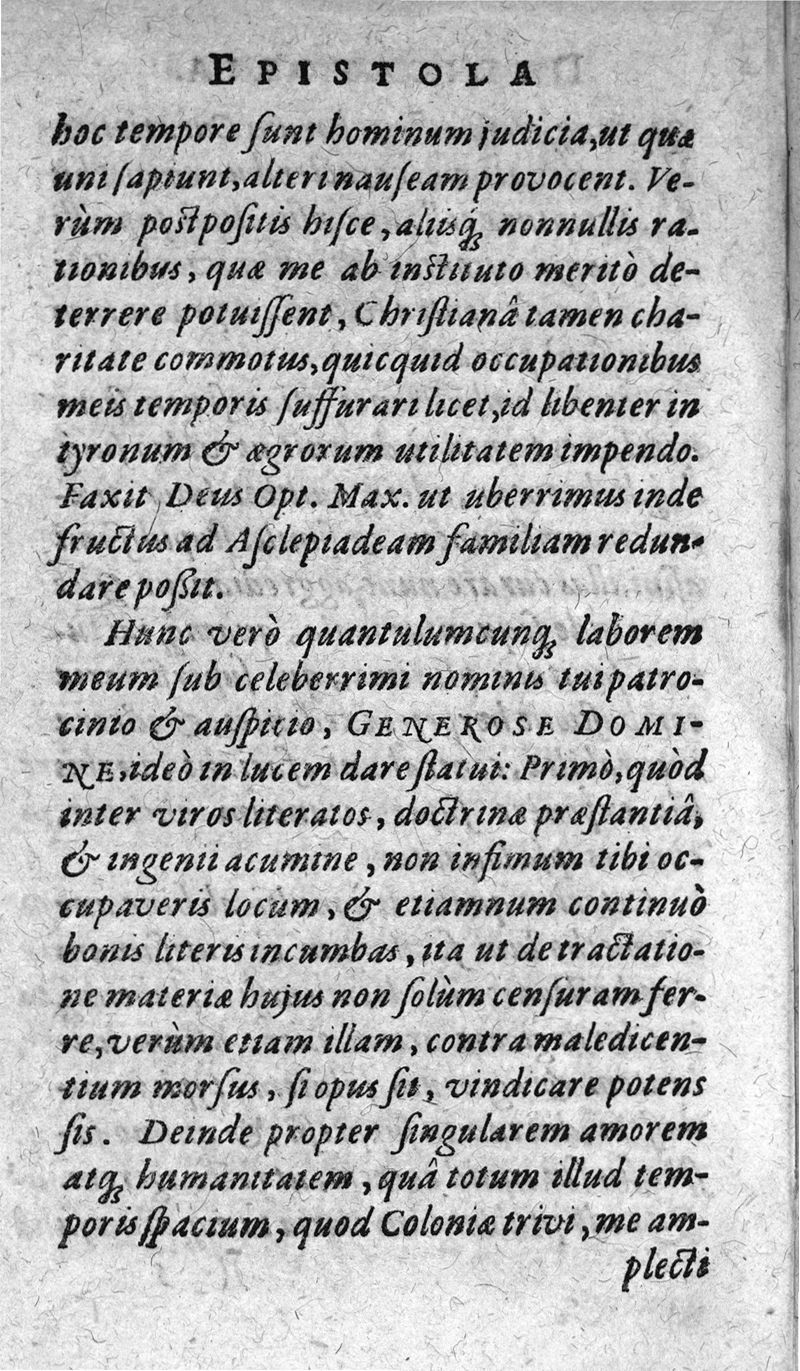 EPISTOLA
hoc tempore ſunt hominum judicia, ut quæ
uni ſapiunt, alteri nauſeam provocent. Ve-
rùm postpoſitis hiſce, aliisq́; nonnullis ra-
tionibus, quæ me ab instituto meritò de-
terrere potuiſſent, Chriſtianâ tamen cha-
ritate commotus, quicquid occupationibus
meis temporis ſuffurari licet, id libenter in
tyronum & ægrorum utilitatem impendo.
Faxit Deus Opt. Max. ut uberrimus inde
fructus ad Aſclepiadeam familiam redun-
dare poßit.
Hunc verò quantulumcunq; laborem
meum ſub celeberrimi nominis tui patro-
cinio & auſpicio, GENEROSE DOMI-
NE, ideò in lucem dare ſtatui: Primò, quòd
inter viros literatos, doctrinæ præſtantiâ,
& ingenii acumine, non infimum tibi oc-
cupaveris locum, & etiamnum continuò
bonis literis incumbas, ita ut de tractatio-
ne materiæ hujus non ſolùm cenſuram fer-
re, verùm etiam illam, contra maledicen-
tium morſus, ſi opus ſit, vindicare potens
ſis. Deinde propter ſingularem amorem
atq; humanitatem, quâ totum illud tem-
poris ſpacium, quod Coloniæ trivi, me am-
plecti